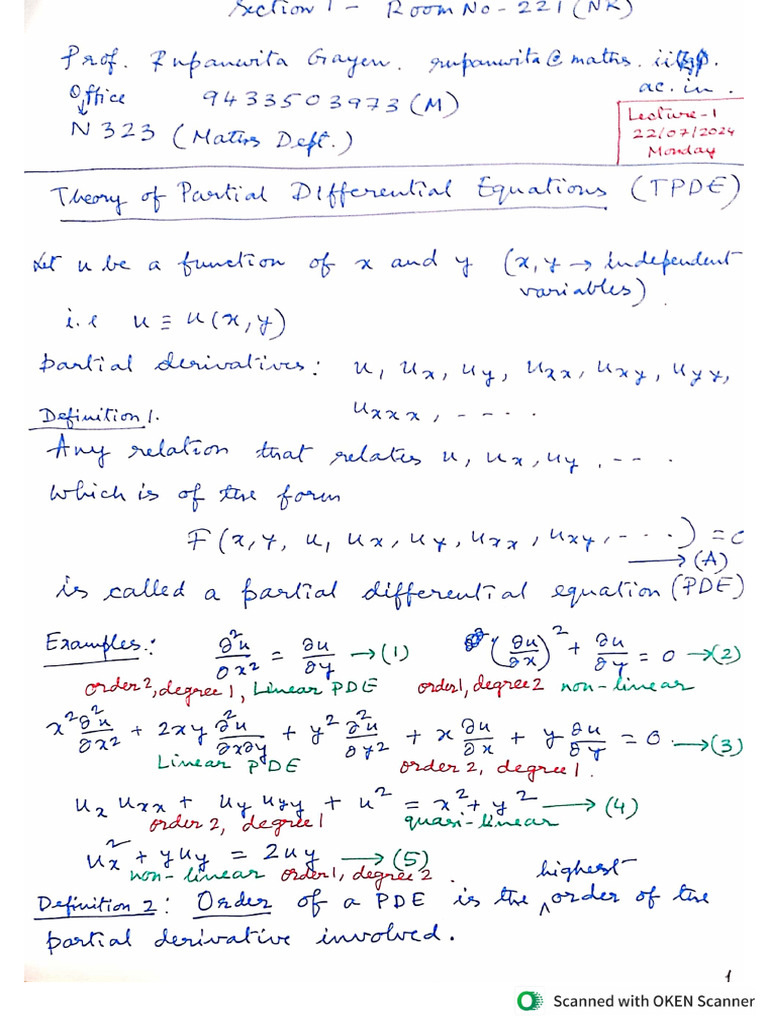 Section 1 - Room No - 221 (NR)
Prof. Rupanwita Gayen. rupanwita@maths.
ac.in.
Office 9433503973 (M)
N323 (Maths Dept.)
Lecture-1
22/07/2024
Monday
Theory of Partial Differential Equations (TPDE)
Let u be a function of x and y (x, y → independent
variables).
i.e u ≡ u(x,y)
partial derivatives: u, ux, uy, uxx, uxy, uyy,
uxxx, - - - .
Definition 1.
Any relation that relates u, ux, uy, - - - .
which is of the form
F(x, y, u, ux, uy, uxx, uxy, - - - .) = 0
→ (A)
is called a partial differential equation (PDE)
Examples: ∂²u/∂x² = ∂u/∂y → (1) (∂u/∂x)² + ∂u/∂y = 0 → (2)
order 2, degree 1, Linear PDE order 1, degree 2 non-linear
x² ∂²u/∂x² + 2xy ∂²u/∂x∂y + y² ∂²u/∂y² + x ∂u/∂x + y ∂u/∂y = 0. → (3)
Linear PDE order 2, degree 1.
ux uxx + uy uyy + u² = x² + y² → (4)
order 2, degree 1 quasi-linear
ux² + y uy = 2uy → (5)
non-linear order 1, degree 2.
Definition 2: Order of a PDE is the highest order of the
partial derivative involved.
1
Scanned with OKEN Scanner